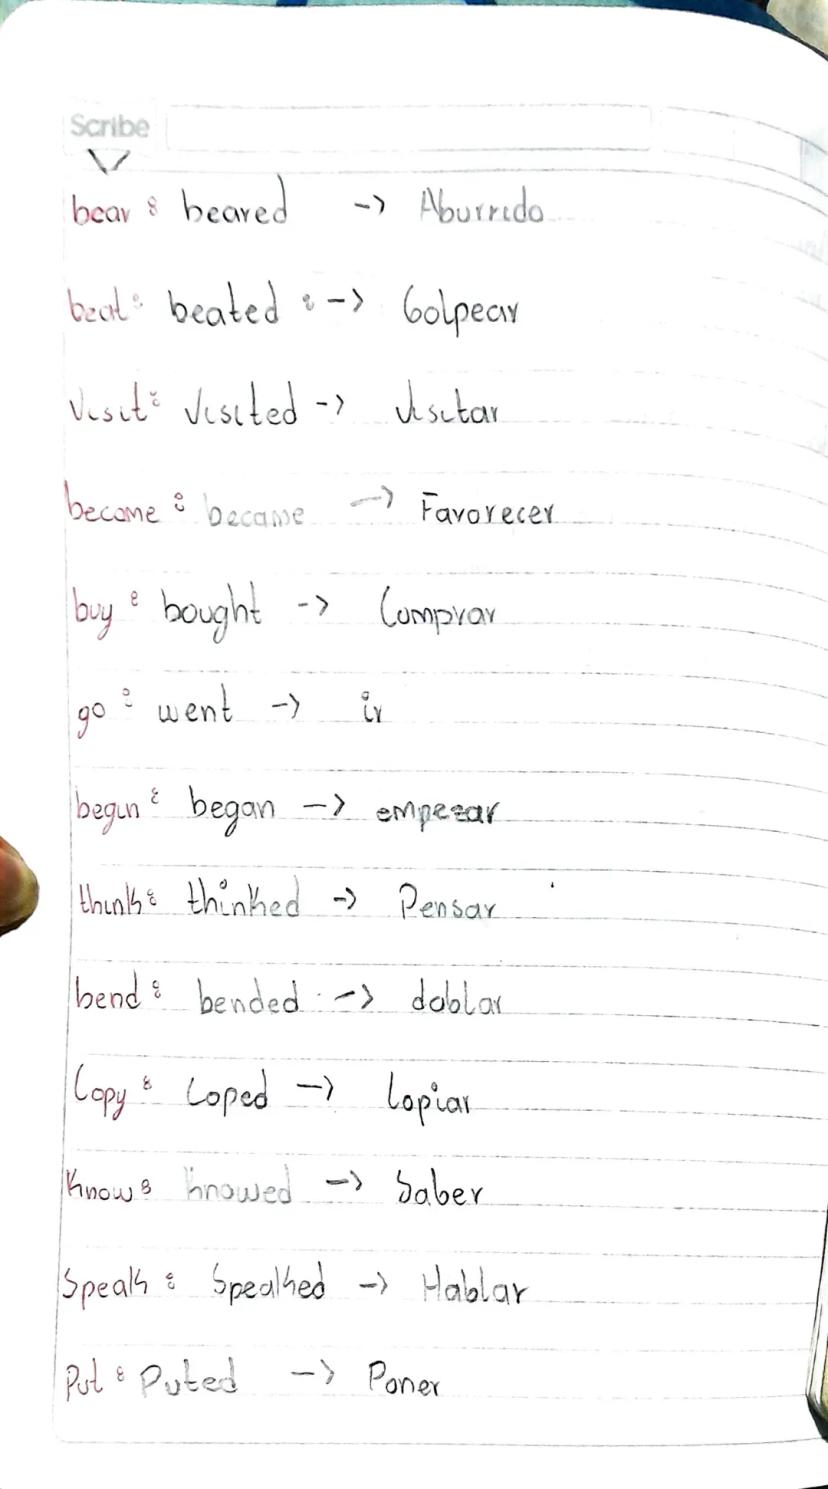 Scribe
bear : beared -> Aburrido
beat : beated : -> Golpear
Visit : Visited -> visitar
become : became -> Favorecer
buy : bought -> Comprar
go : went -> ir
begin : began -> empezar
think : thinked -> Pensar
bend : bended : -> doblar
Copy : Coped -> Copiar
Know : Knowed -> Saber
Speak : Speaked -> Hablar
Put : Puted -> Poner